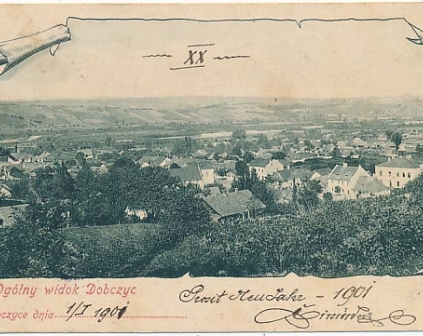 XX
Ogólny widok Dobczyc
oczyce dnia 1/I 1901
Prosit Neu Jahr - 1901